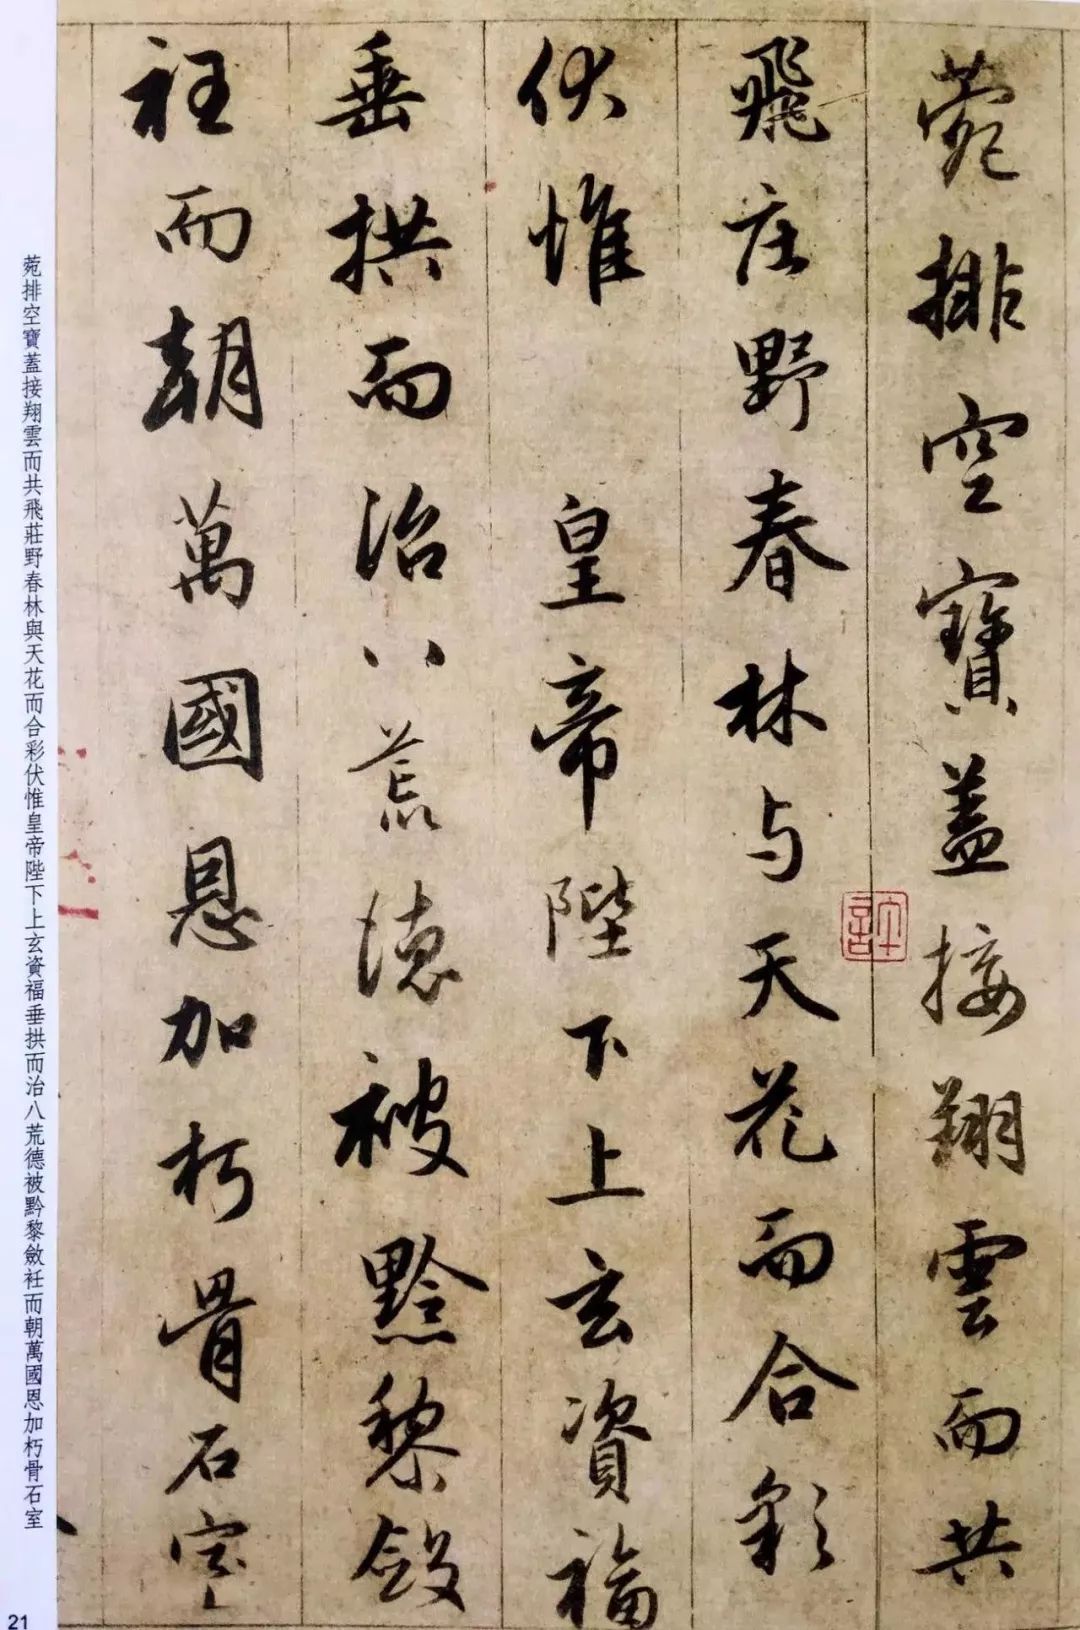 菀排空寶蓋接翔雲而共
飛庄野春林与天花而合彩
伏惟皇帝陛下上玄資福
垂拱而治八荒德被黔黎斂
衽而朝萬國恩加朽骨石室
許
菀排空寶蓋接翔雲而共飛莊野春林與天花而合彩伏惟皇帝陛下上玄資福垂拱而治八荒德被黔黎斂衽而朝萬國恩加朽骨石室
21